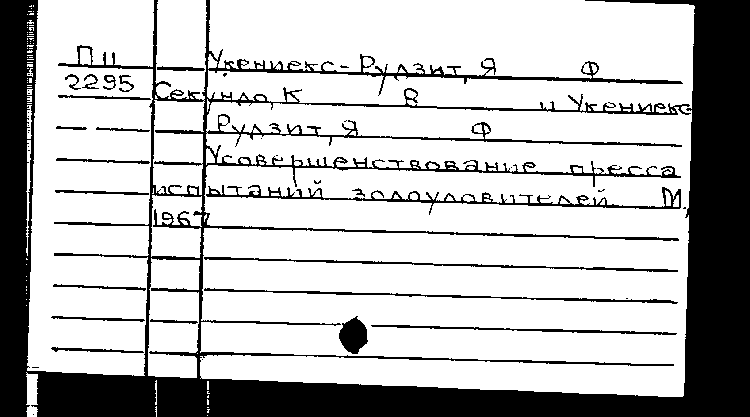 П II Укениекс-Рудзит, Я Ф
2295 Секундо, К В и Укениекс
Рудзит, Я Ф
Усовершенствование пресса
испытаний золоуловителей М,
1967